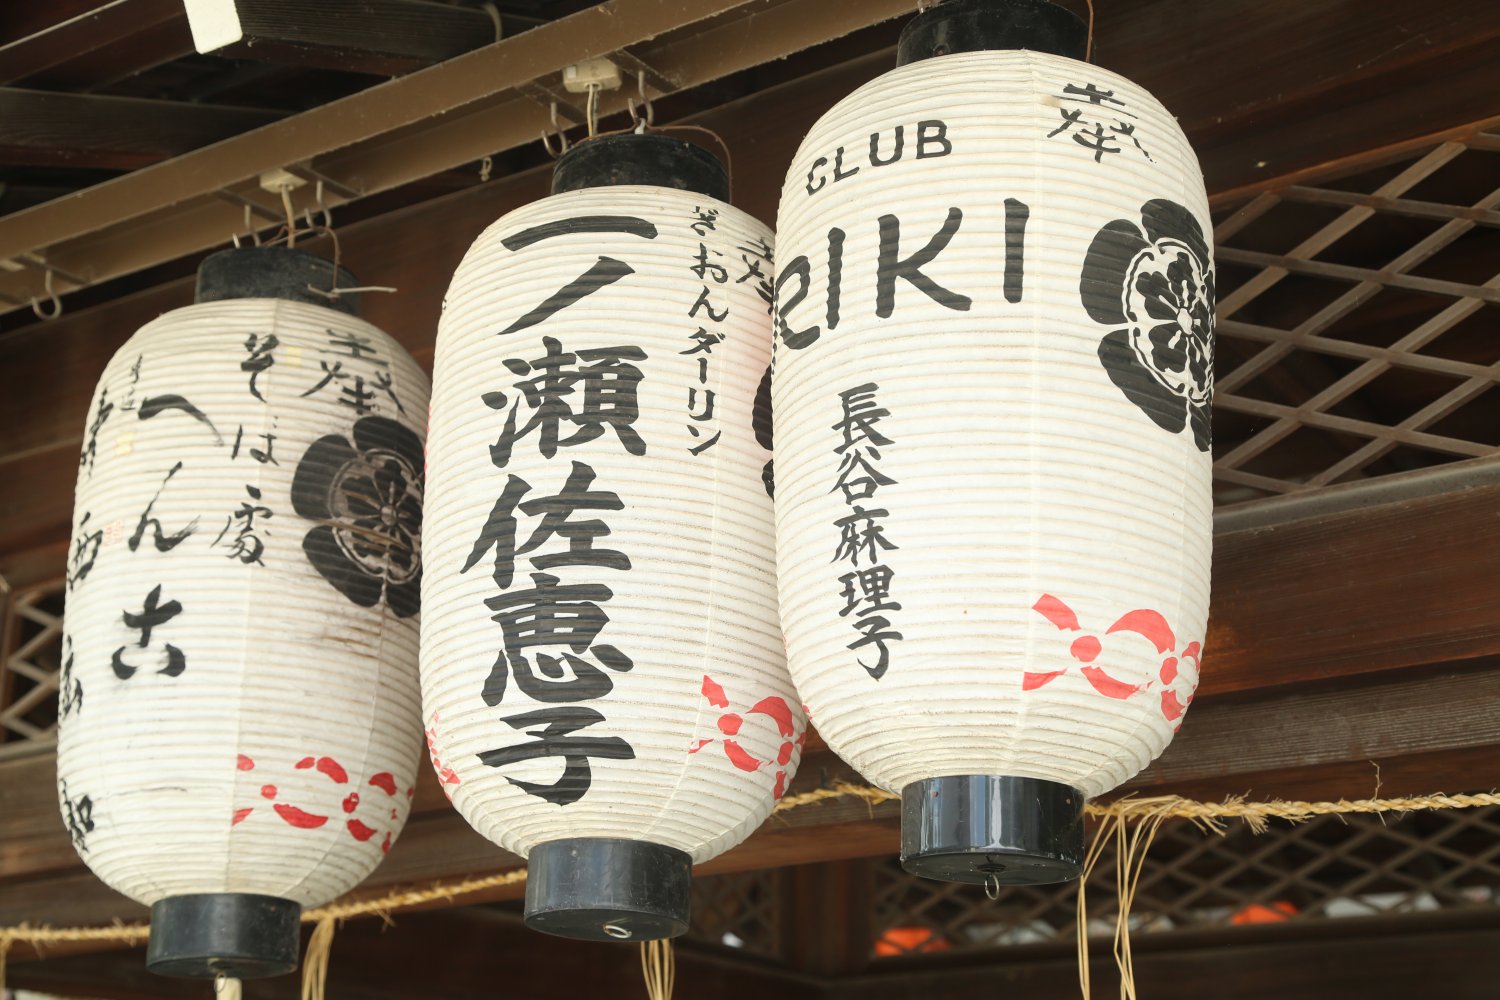 奉
CLUB
eIKI
長谷麻理子
奉
ぎおんダーリン
一ノ瀬佐恵子
奉
そば處
へん古